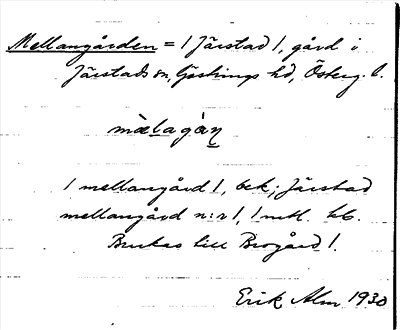 Mellangården = / Järstad /, gård i
Järstads sn, Göstrings hd, Österg. l.
mèlagàɳ
/ mellangård /, bek; Järstad
mellangård n:r 1, 1 mtl. kb.
Brukas till Brogård /.
Erik Alm 1930